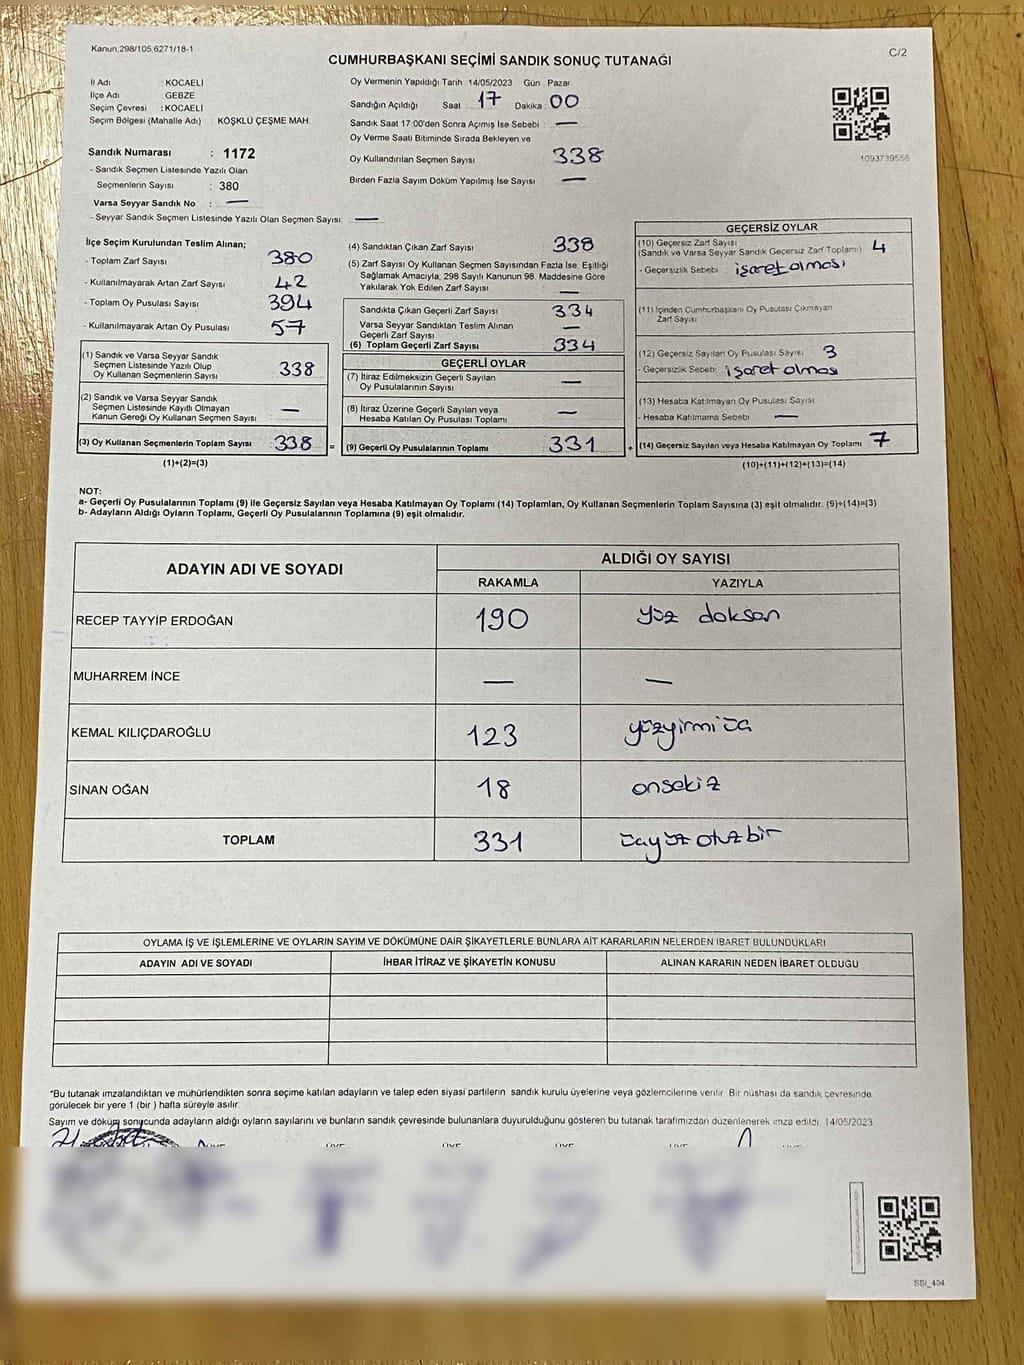 Kanun,298/105,6271/18-1
C/2
CUMHURBAŞKANI SEÇİMİ SANDIK SONUÇ TUTANAĞI
İl Adı : KOCAELİ
İlçe Adı : GEBZE
Seçim Çevresi : KOCAELİ
Seçim Bölgesi (Mahalle Adı) : KÖŞKLÜ ÇEŞME MAH.
Sandık Numarası : 1172
- Sandık Seçmen Listesinde Yazılı Olan
Seçmenlerin Sayısı : 380
Varsa Seyyar Sandık No : —
- Seyyar Sandık Seçmen Listesinde Yazılı Olan Seçmen Sayısı: —
Oy Vermenin Yapıldığı Tarih :14/05/2023 Gün : Pazar
Sandığın Açıldığı Saat : 17 Dakika : 00
Sandık Saat 17:00'den Sonra Açımış İse Sebebi : —
Oy Verme Saati Bitiminde Sırada Bekleyen ve
Oy Kullandırılan Seçmen Sayısı 338
Birden Fazla Sayım Döküm Yapılmış İse Sayısı : —
1093739556
İlçe Seçim Kurulundan Teslim Alınan;
- Toplam Zarf Sayısı 380
- Kullanılmayarak Artan Zarf Sayısı : 42
- Toplam Oy Pusulası Sayısı 394
- Kullanılmayarak Artan Oy Pusulası : 57
(1) Sandık ve Varsa Seyyar Sandık
Seçmen Listesinde Yazılı Olup
Oy Kullanan Seçmenlerin Sayısı : 338
(2) Sandık ve Varsa Seyyar Sandık
Seçmen Listesinde Kayıtlı Olmayan
Kanun Gereği Oy Kullanan Seçmen Sayısı : —
(3) Oy Kullanan Seçmenlerin Toplam Sayısı : 338
(1)+(2)=(3)
=
(4) Sandıktan Çıkan Zarf Sayısı 338
(5) Zarf Sayısı Oy Kullanan Seçmen Sayısından Fazla İse, Eşitliği
Sağlamak Amacıyla, 298 Sayılı Kanunun 98. Maddesine Göre
Yakılarak Yok Edilen Zarf Sayısı : —
Sandıkta Çıkan Geçerli Zarf Sayısı : 334
Varsa Seyyar Sandıktan Teslim Alınan
Geçerli Zarf Sayısı : —
(6) Toplam Geçerli Zarf Sayısı : 334
GEÇERLİ OYLAR
(7) İtiraz Edilmeksizin Geçerli Sayılan
Oy Pusulalarının Sayısı : —
(8) İtiraz Üzerine Geçerli Sayılan veya
Hesaba Katılan Oy Pusulası Toplamı : —
(9) Geçerli Oy Pusulalarının Toplamı : 331
+
GEÇERSİZ OYLAR
(10) Geçersiz Zarf Sayısı
(Sandık ve Varsa Seyyar Sandık Geçersiz Zarf Toplamı) : 4
- Geçersizlik Sebebi : işaret olması
(11) İçinden Cumhurbaşkanı Oy Pusulası Çıkmayan
Zarf Sayısı
(12) Geçersiz Sayılan Oy Pusulası Sayısı : 3
- Geçersizlik Sebebi : işaret olması
(13) Hesaba Katılmayan Oy Pusulası Sayısı
- Hesaba Katılmama Sebebi : —
(14) Geçersiz Sayılan veya Hesaba Katılmayan Oy Toplamı : 7
(10)+(11)+(12)+(13)=(14)
NOT:
a- Geçerli Oy Pusulalarının Toplamı (9) ile Geçersiz Sayılan veya Hesaba Katılmayan Oy Toplamı (14) Toplamları, Oy Kullanan Seçmenlerin Toplam Sayısına (3) eşit olmalıdır. (9)+(14)=(3)
b- Adayların Aldığı Oyların Toplamı, Geçerli Oy Pusulalarının Toplamına (9) eşit olmalıdır.
ADAYIN ADI VE SOYADI
ALDIĞI OY SAYISI
RAKAMLA YAZIYLA
RECEP TAYYİP ERDOĞAN 190 yüz doksan
MUHARREM İNCE — —
KEMAL KILIÇDAROĞLU 123 yüzyirmi üç
SİNAN OĞAN 18 onsekiz
TOPLAM 331 üçyüz otuz bir
OYLAMA İŞ VE İŞLEMLERİNE VE OYLARIN SAYIM VE DÖKÜMÜNE DAİR ŞİKAYETLERLE BUNLARA AİT KARARLARIN NELERDEN İBARET BULUNDUKLARI
ADAYIN ADI VE SOYADI İHBAR İTİRAZ VE ŞİKAYETİN KONUSU ALINAN KARARIN NEDEN İBARET OLDUĞU
*Bu tutanak imzalandıktan ve mühürlendikten sonra seçime katılan adayların ve talep eden siyasi partilerin sandık kurulu üyelerine veya gözlemcilerine verilir. Bir nüshası da sandık çevresinde
görülecek bir yere 1 (bir ) hafta süreyle asılır.
Sayım ve döküm sonucunda adayların aldığı oyların sayılarını ve bunların sandık çevresinde bulunanlara duyurulduğunu gösteren bu tutanak tarafımızdan düzenlenerek imza edildi. 14/05/2023
SSİ_404